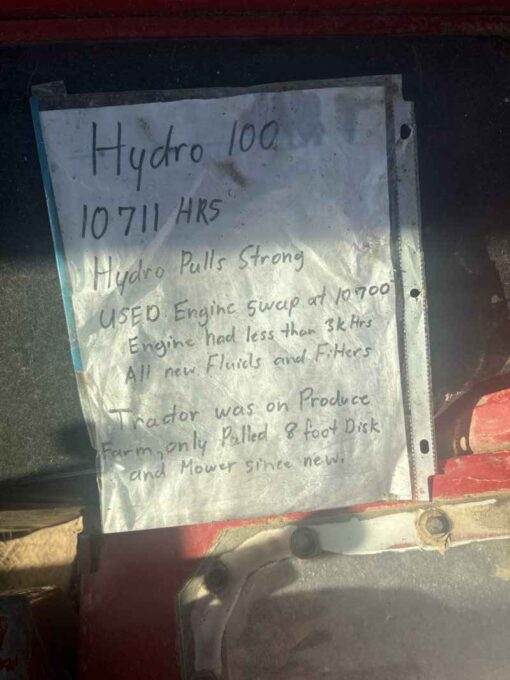 Hydro 100
10711 HRS
Hydro Pulls Strong
USED Engine Swap at 10700
Engine had less than 3k Hrs
All new Fluids and Filters
Tractor was on Produce
Farm, only Pulled 8 foot Disk
and Mower since new.